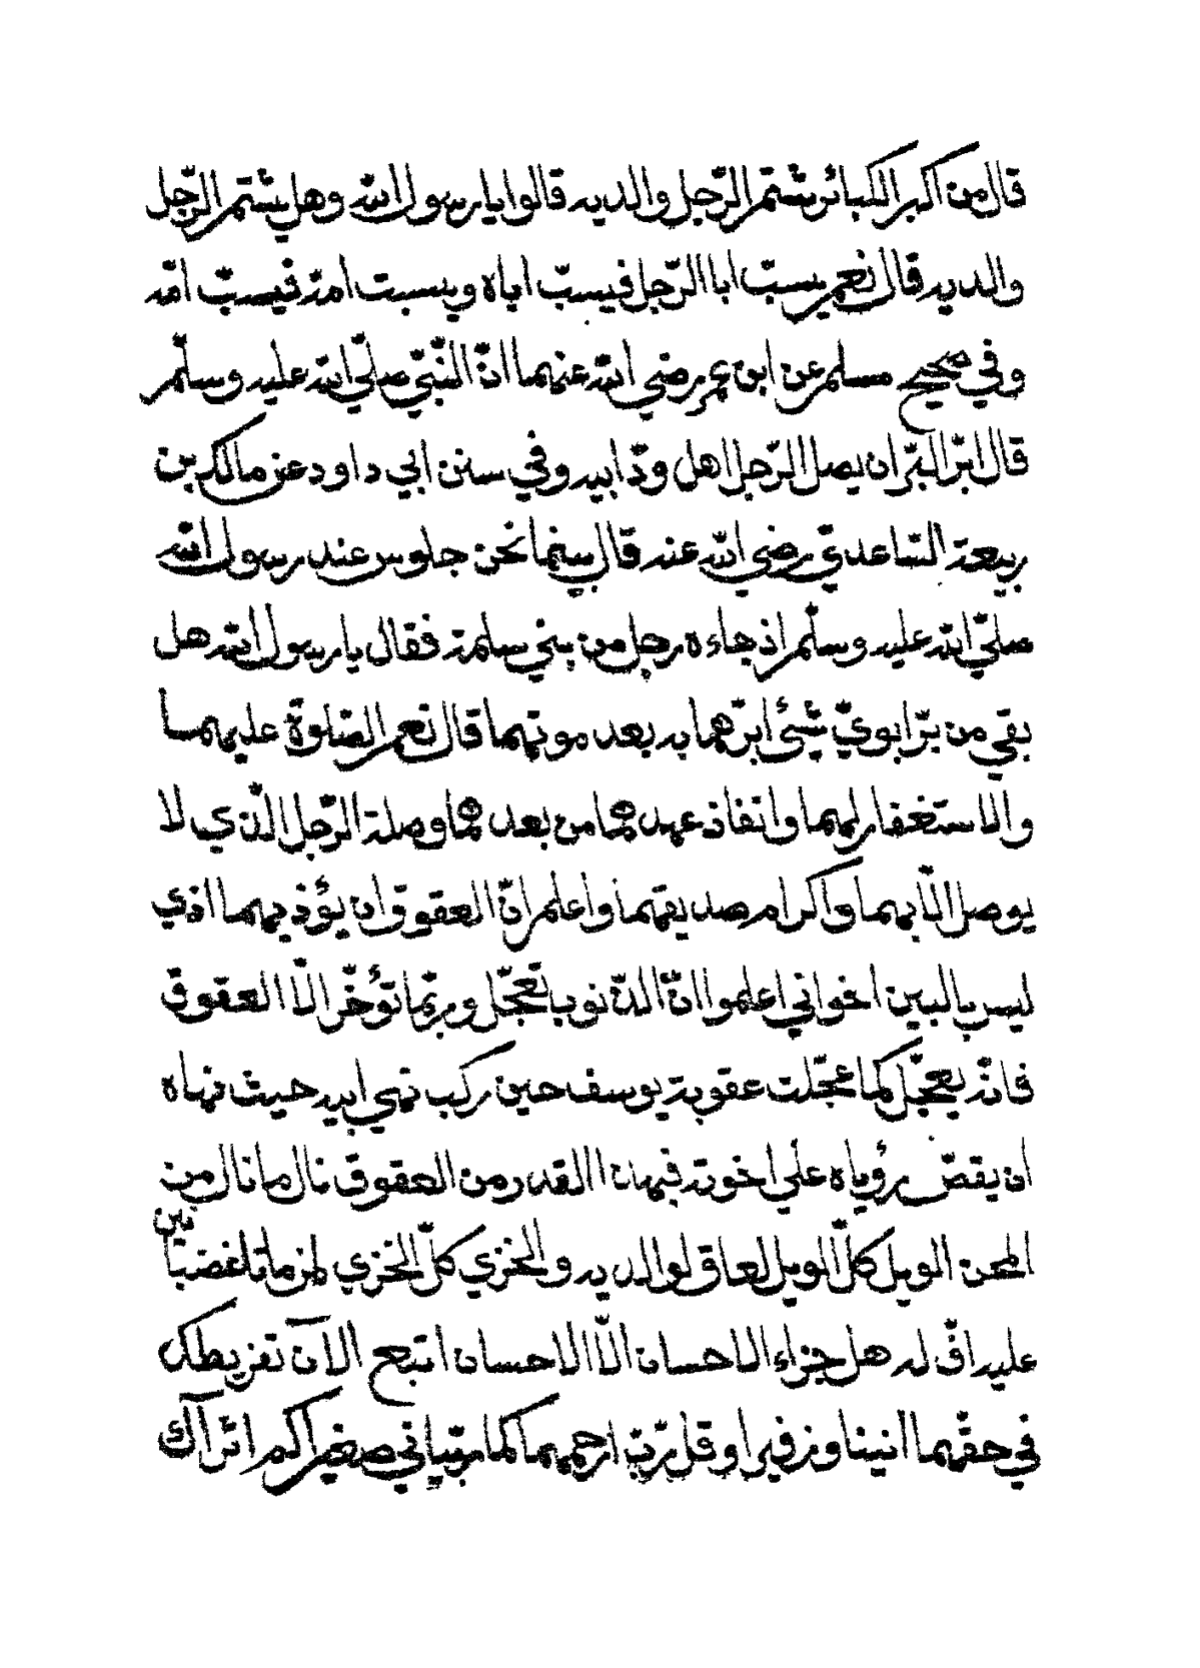 قال من اكبر الكبائر شتم الرّجل والديه قالوا يا رسول الله وهل يشتم الرّجل
والديه قال نعم يسبّ ابا الرّجل فيسبّ اباه ويسبّ امّه فيسبّ امّه
وفي صحيح مسلم عن ابن عمر رضي الله عنهما انّ النّبيّ صلّي الله عليه وسلّم
قال ابرّ البرّ ان يصل الرّجل اهل ودّ ابيه وفي سنن ابي داود عن مالك بن
ربيعة السّاعديّ رضي الله عنه قال بينما نحن جلوس عند رسول الله
صلّي الله عليه وسلّم اذ جاءه رجل من بني سلمة فقال يا رسول الله هل
بقي من برّ ابويّ شيئ ابرّهما به بعد موتهما قال نعم الصّلوة عليهما
والاستغفار لهما وانفاذ عهدهما من بعدهما وصلة الرّحل الّذي لا
يوصل الّا بهما واكرام صديقهما واعلم انّ العقوق ان يؤذيهما اذي
ليس بالبين اخواني اعلموا انّ الذّنوب تعجّل وربّما تؤخّر الّا العقوق
فانّه يعجّل كما عجّلت عقوبة يوسف حين ركب نهي ابيه حيث نهاه
ان يقصّ رؤياه علي اخوته فبهذا القدر من العقوق نال ما نال من
المحن الويل كلّ الويل لعاق لوالديه والخزي كلّ الخزي لمن ماتا غضبا بين
عليه افّ له هل جزاء الاحسان الّا الاحسان اتبع الآن تفريطك
في حقّهما انينا وزفيرا وقل ربّ ارحمهما كما ربّياني صغيرا كم اثراك